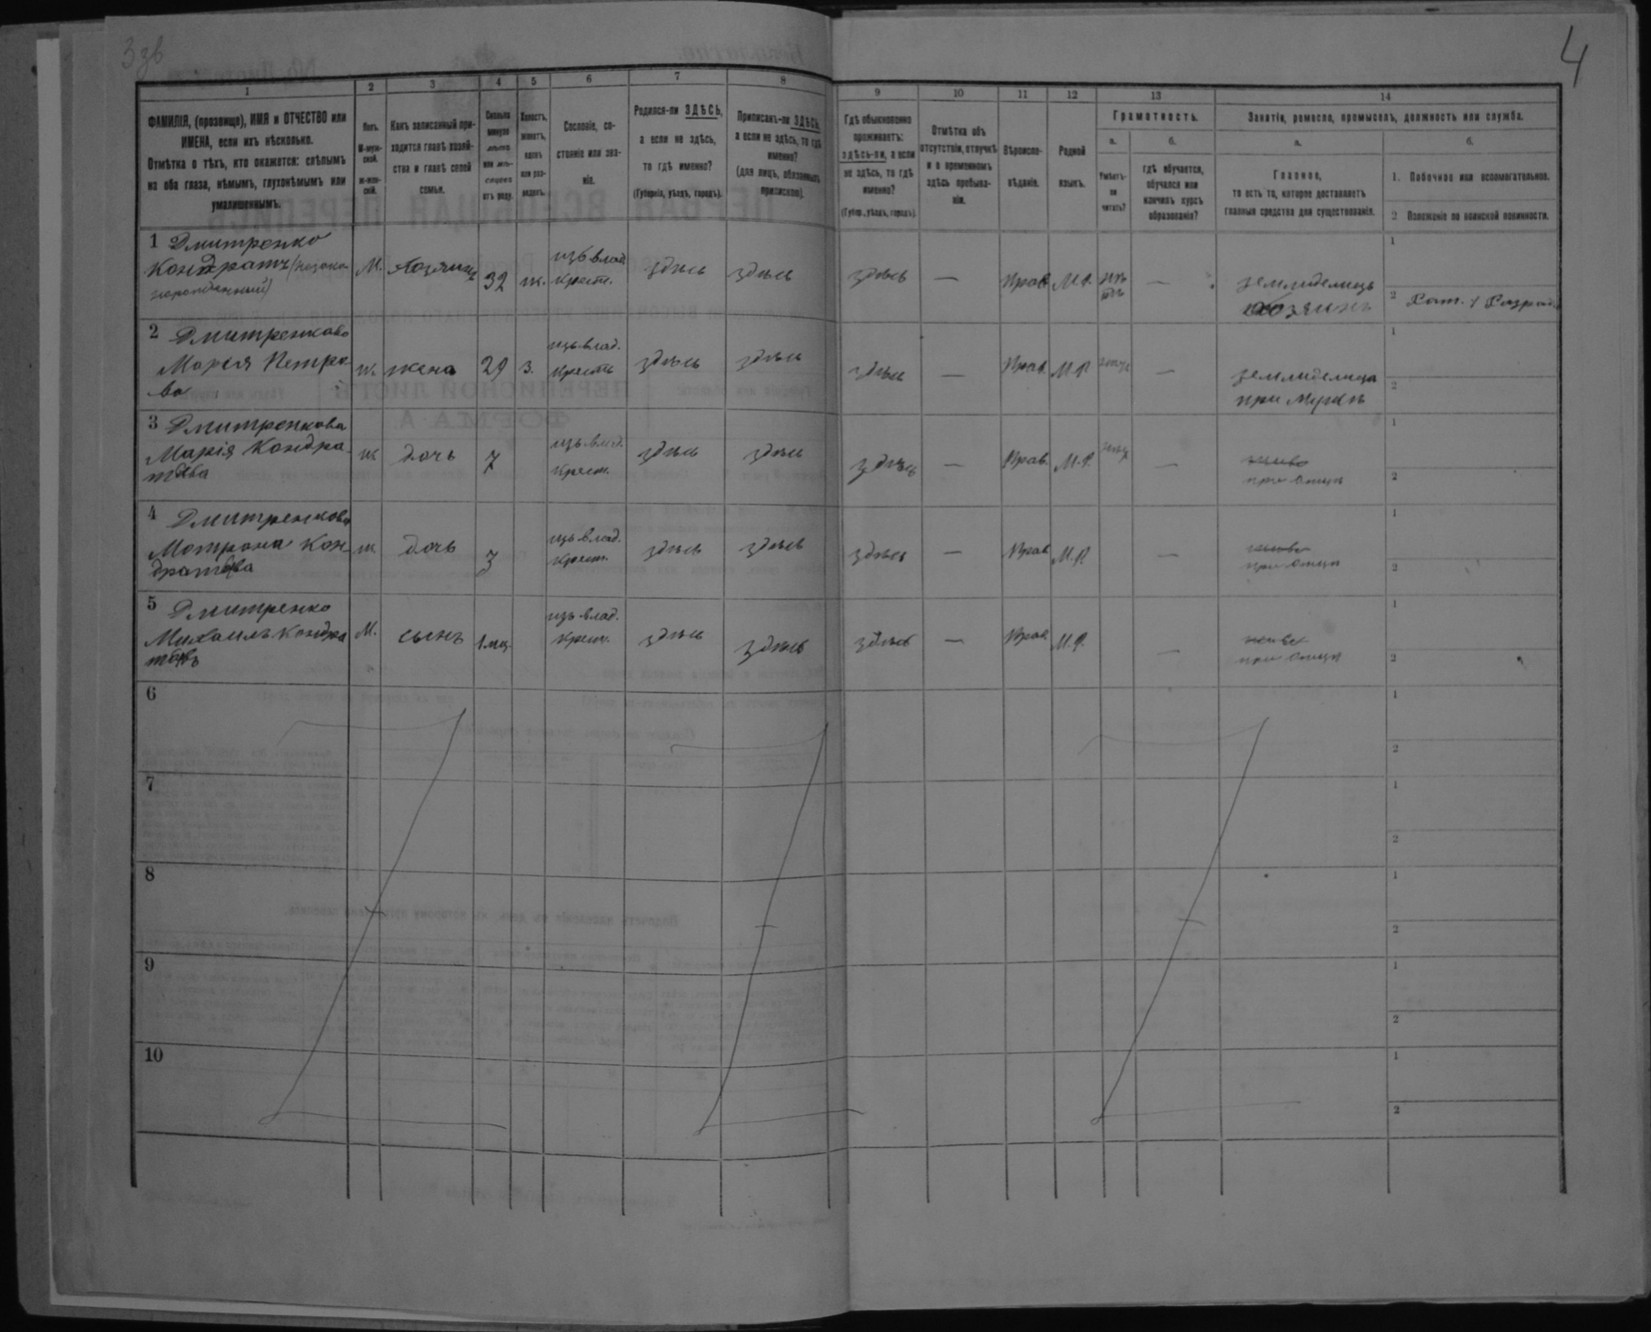 4
1
2
3
4
5
6
7
8
9
10
11
12
13
14
ФАМИЛІЯ, (прозвище), ИМЯ и ОТЧЕСТВО или
ИМЕНА, если ихъ нѣсколько.
Отмѣтка о тѣхъ, кто окажется: слѣпымъ
на оба глаза, нѣмымъ, глухонѣмымъ или
умалишеннымъ.
Полъ.
М-муж-
ской.
Ж-жен-
скій.
Какъ записанный при-
ходится главѣ хозяй-
ства и главѣ своей
семьи.
Сословіе, со-
стояніе или зва-
ніе.
Родился-ли ЗДѢСЬ,
а если не здѣсь,
то гдѣ именно?
(Губернія, уѣздъ, городъ).
Приписанъ-ли ЗДѢСЬ,
а если не здѣсь, то гдѣ
именно?
(для лицъ, обязанныхъ
припискою).
Гдѣ обыкновенно
проживаетъ:
здѣсь-ли, а если
не здѣсь, то гдѣ
именно?
(Губер., уѣздъ, городъ).
Отмѣтка объ
отсутствіи, отлучкѣ
и о временномъ
здѣсь пребыва-
ніи.
Вѣроиспо-
вѣданіе.
Родной
языкъ.
Грамотность.
а.
б.
Умѣетъ-
ли
читать?
гдѣ обучается,
обучался или
кончилъ курсъ
образованія?
Занятія, ремесло, промыселъ, должность или служба.
а.
б.
Главное,
то есть то, которое доставляетъ
главныя средства для существованія.
1. Побочное или вспомогательное.
2 Положеніе по воинской повинности.
1 Дмитренко
Кондратъ
М. хозяинъ 32 ж. изъ влад. крест. здѣсь здѣсь здѣсь — Прав. М.Р. нѣтъ — земледелецъ
хозяинъ
1
2 Рат. 1 Разряда
2 Дмитренкова
Марія Петро-
ва
ж. жена 29 З. изъ влад. крест. здѣсь здѣсь здѣсь — Прав. М.Р. — земледелица
при мужѣ
1
2
3 Дмитренкова
Марія Кондра-
това
ж. дочь 7 изъ влад. крест. здѣсь здѣсь здѣсь — Прав. М.Р. —
при отцѣ
1
2
4 Дмитренкова
Мотрона Кон
дратова
ж. дочь 3 изъ влад. крест. здѣсь здѣсь здѣсь — Прав. М.Р. —
при отцѣ
1
2
5 Дмитренко
Михаилъ Кондра
товъ
М. сынъ 1 мц. изъ влад. крест. здѣсь здѣсь здѣсь — Прав. М.Р. —
при отцѣ
1
2
6
1
2
7
1
2
8
1
2
9
1
2
10
1
2